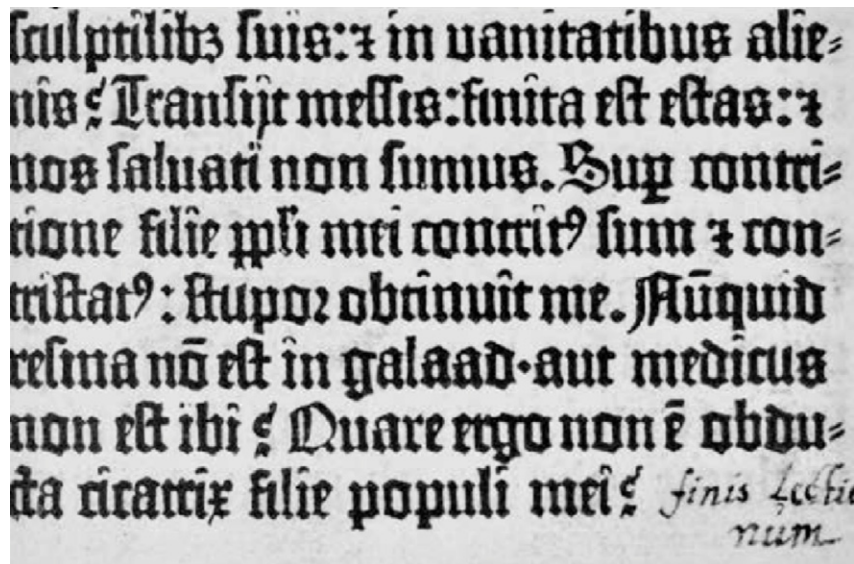 sculptilibꝫ suis: ⁊ in vanitatibus alie⸗
nis? Transijt messis: finita est estas: ⁊
nos saluati non sumus. Suꝑ contri⸗
tione filie ppl̄i mei contritꝰ sum ⁊ con⸗
tristatꝰ: stupor obtinuit me. Nūquid
resina nō est in galaad· aut medicus
non est ibi? Quare ergo non ē obdu⸗
cta cicatrix filie populi mei? finis Lectio
num